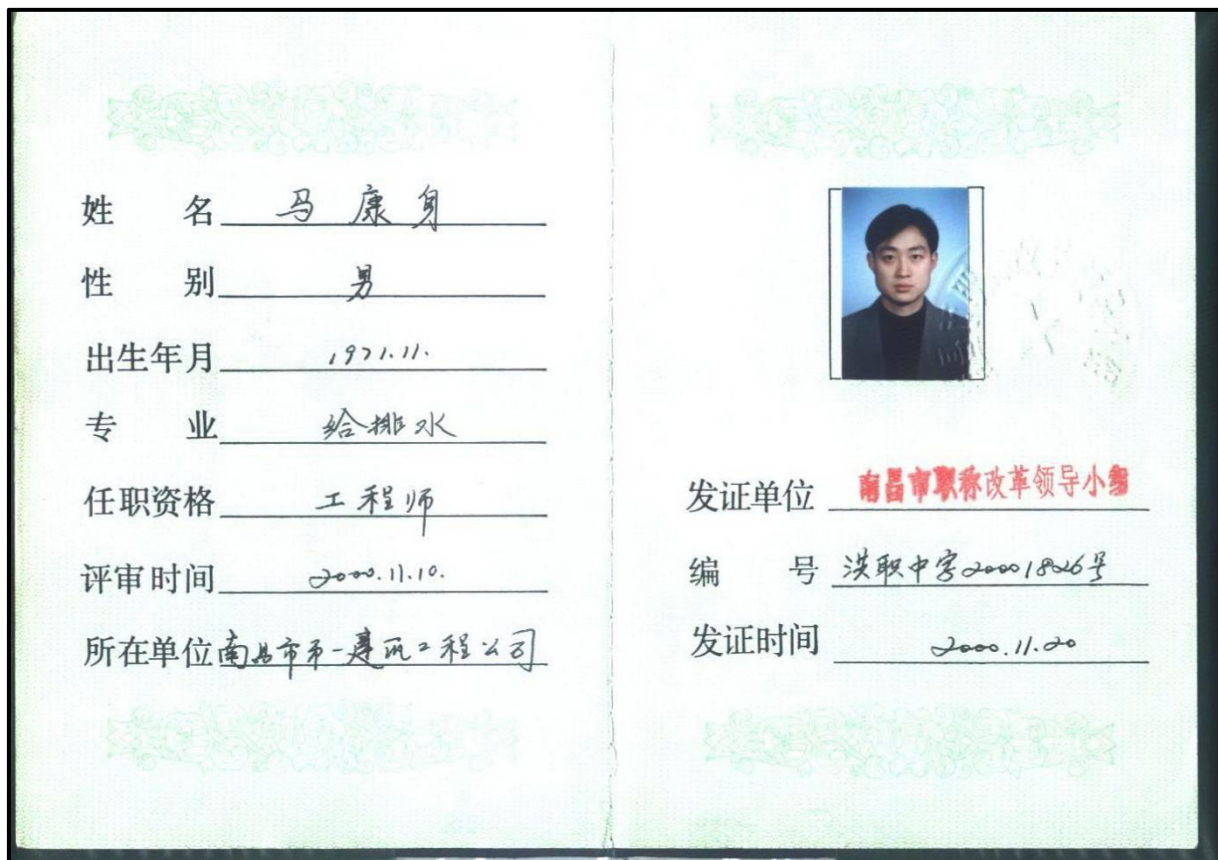 姓 名 马康身
性 别 男
出生年月 1971.11.
专 业 给排水
任职资格 工程师
评审时间 2000.11.10.
所在单位 南昌市第一建筑工程公司
发证单位 南昌市职称改革领导小组
编 号 洪职中字20001826号
发证时间 2000.11.20